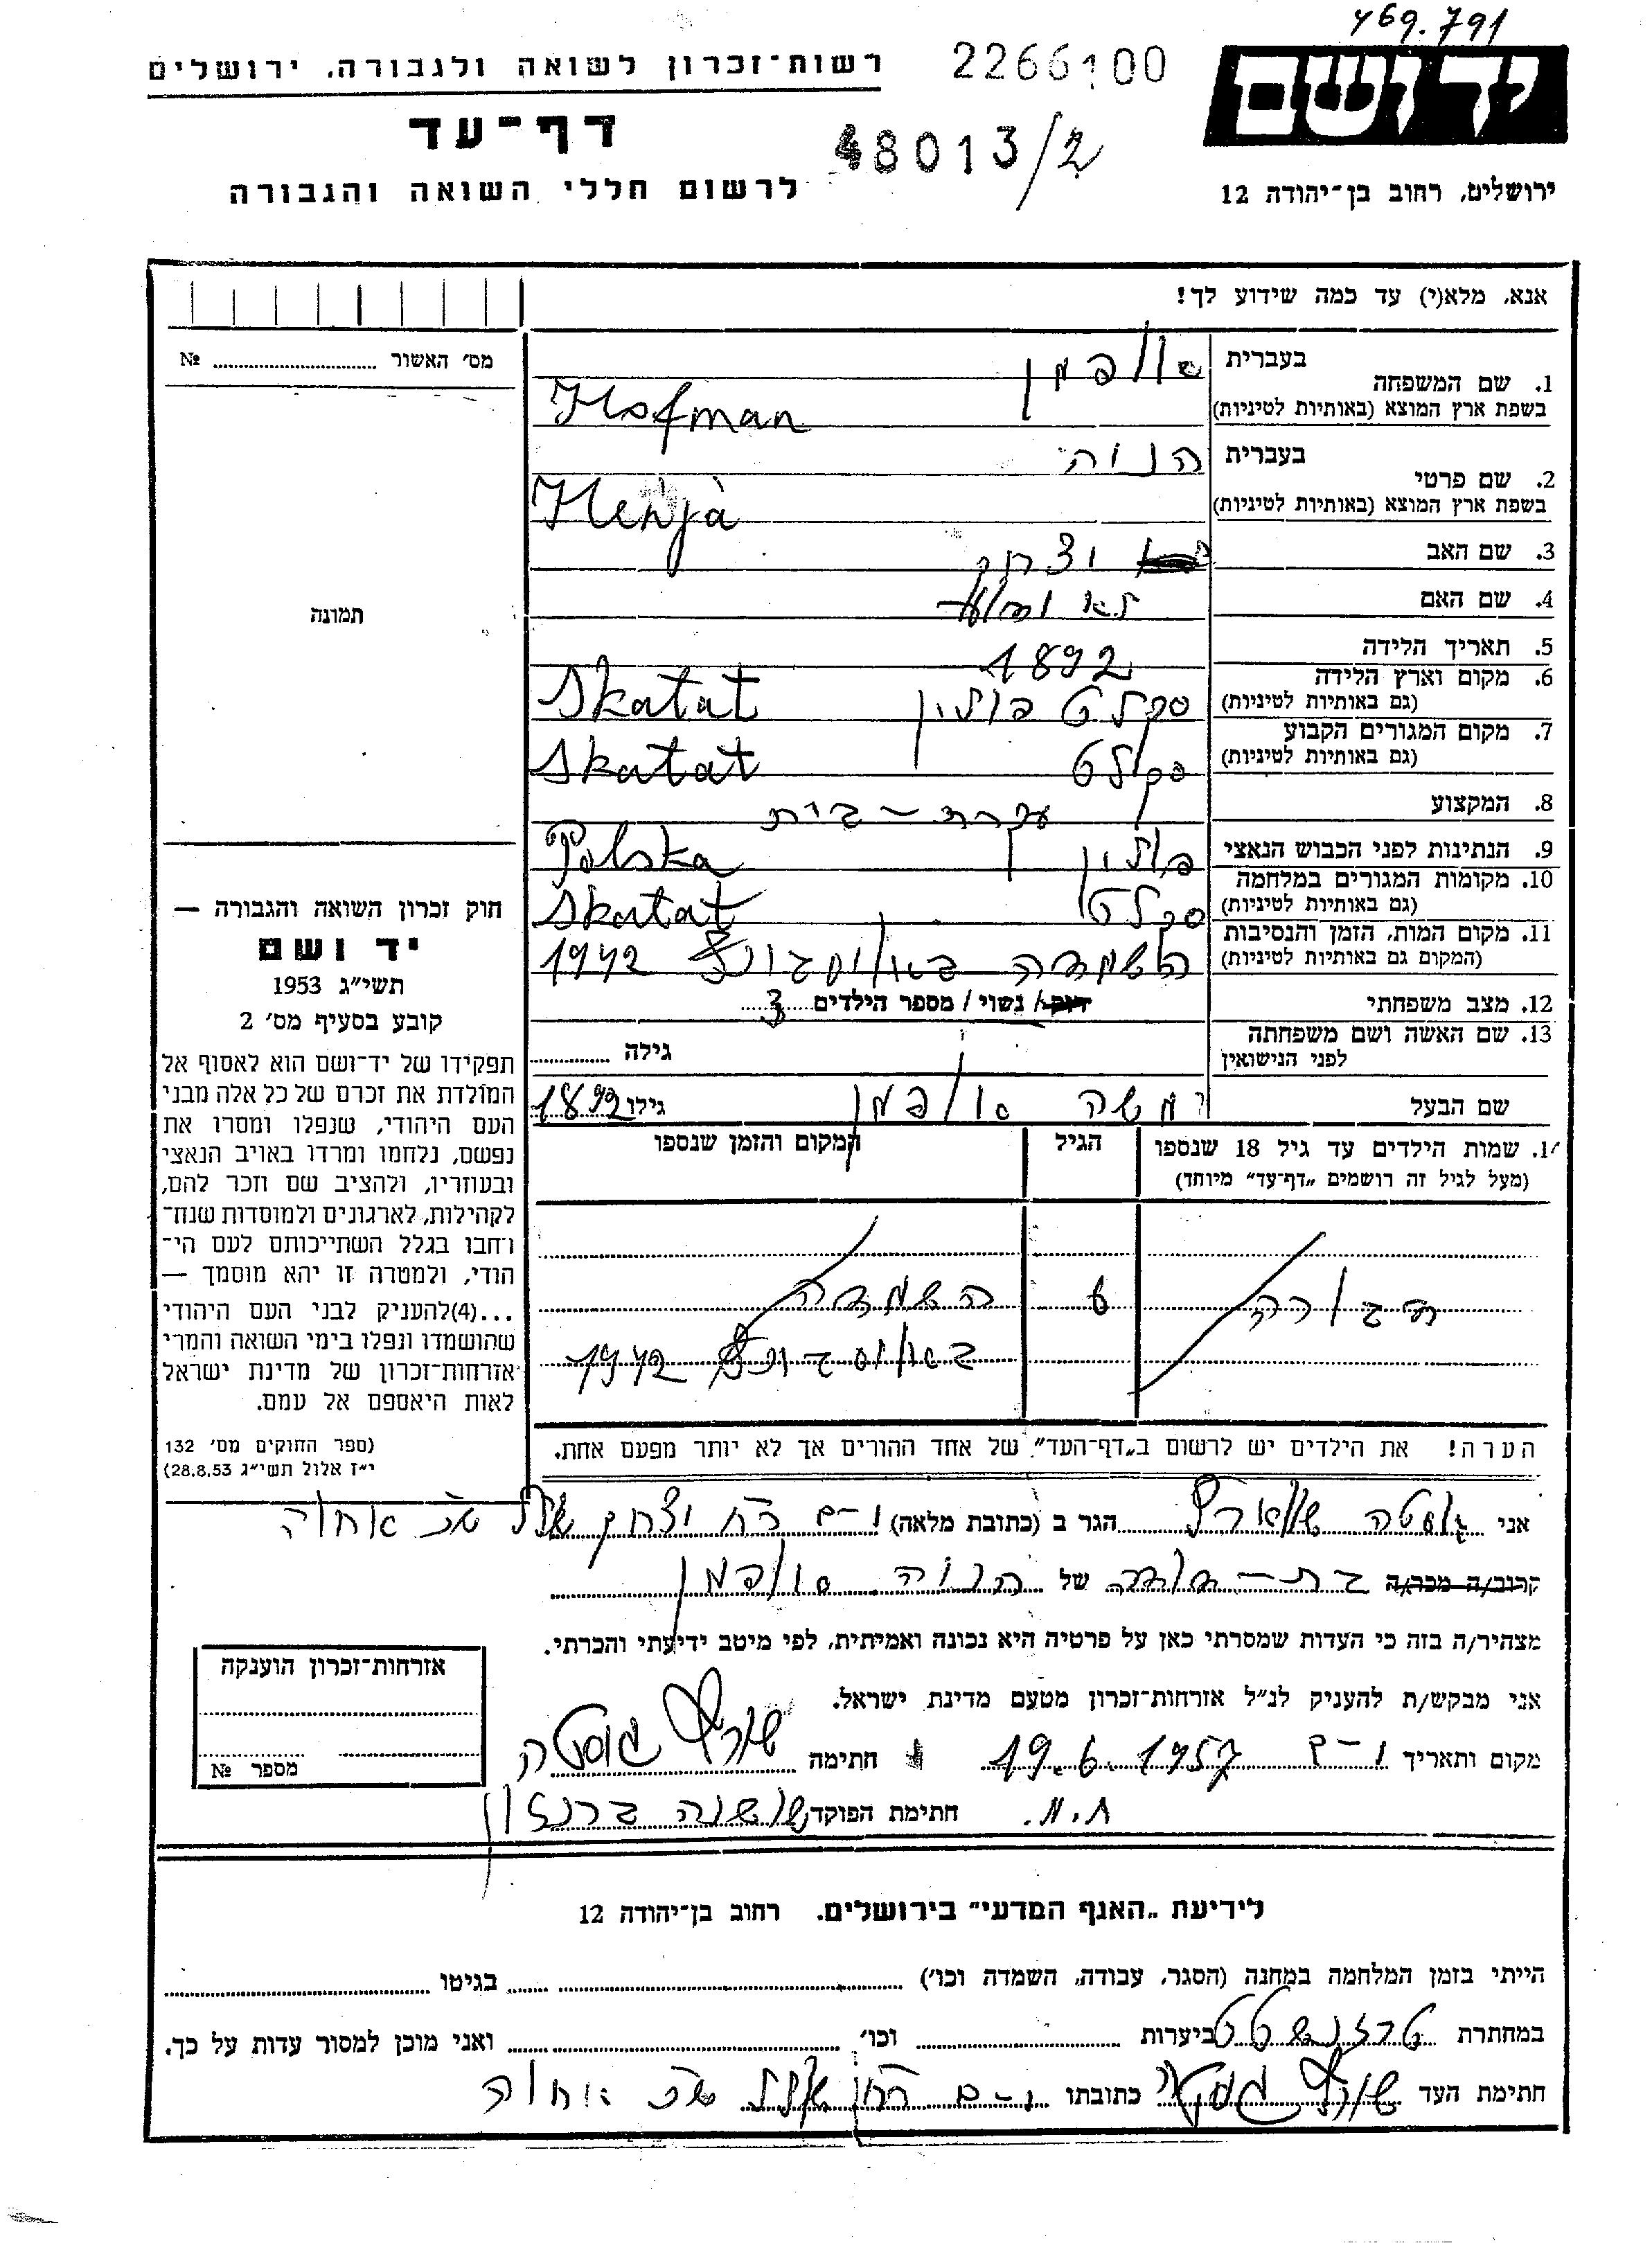 469.791
ידושם
ירושלים, רחוב בן־יהודה 12
2266100
48013/2
רשות־זכרון לשואה ולגבורה, ירושלים
דף־עד
לרשום חללי השואה והגבורה
אנא, מלא(י) עד כמה שידוע לך!
מס׳ האשור № 
1. שם המשפחה
בעברית
בשפת ארץ המוצא (באותיות לטיניות) Hofman
2. שם פרטי
בעברית הניה
בשפת ארץ המוצא (באותיות לטיניות) Henja
3. שם האב יצחק
4. שם האם
5. תאריך הלידה 1892
6. מקום וארץ הלידה סקלט פולין Skatat
(גם באותיות לטיניות)
7. מקום המגורים הקבוע סקלט Skatat
(גם באותיות לטיניות)
8. המקצוע עקרת-בית
9. הנתינות לפני הכבוש הנאצי פולין Polska
10. מקומות המגורים במלחמה סקלט Skatat
(גם באותיות לטיניות)
11. מקום המות, הזמן והנסיבות 1942
(המקום גם באותיות לטיניות)
12. מצב משפחתי רווק/ נשוי / מספר הילדים 3
13. שם האשה ושם משפחתה גילה
לפני הנישואין
שם הבעל משה גילו 1892
14. שמות הילדים עד גיל 18 שנספו הגיל המקום והזמן שנספו
(מעל לגיל זה רושמים „דף־עד״ מיוחד)
דבורה 6 השמדה
1942
הערה! את הילדים יש לרשום ב„דף־העד״ של אחד ההורים אך לא יותר מפעם אחת.
תמונה
חוק זכרון השואה והגבורה —
יד ושם
תשי״ג 1953
קובע בסעיף מס׳ 2
תפקידו של יד־ושם הוא לאסוף אל
המולדת את זכרם של כל אלה מבני
העם היהודי, שנפלו ומסרו את
נפשם, נלחמו ומרדו באויב הנאצי
ובעוזריו, ולהציב שם וזכר להם,
לקהילות, לארגונים ולמוסדות שנח־
רבו בגלל השתייכותם לעם הי־
הודי, ולמטרה זו יהא מוסמך —
...(4)להעניק לבני העם היהודי
שהושמדו ונפלו בימי השואה והמרי
אזרחות־זכרון של מדינת ישראל
לאות היאספם אל עמם.
(ספר החוקים מס׳ 132
י״ז אלול תשי״ג 28.8.53)
אני גוסטה הגר ב (כתובת מלאה) י-ם רח יצחק אחוה
קרוב/ה מכר/ה בת-דודה של הניה
מצהיר/ה בזה כי העדות שמסרתי כאן על פרטיה היא נכונה ואמיתית, לפי מיטב ידיעתי והכרתי.
אני מבקש/ת להעניק לנ״ל אזרחות־זכרון מטעם מדינת ישראל.
מקום ותאריך י-ם 19.6.1957 חתימה גוסטה
חתימת הפוקד שושנה
אזרחות־זכרון הוענקה
מספר №
לידיעת „האגף המדעי״ בירושלים, רחוב בן־יהודה 12
הייתי בזמן המלחמה במחנה (הסגר, עבודה, השמדה וכו׳) בגיטו
במחתרת ביערות וכו׳ ואני מוכן למסור עדות על כך.
חתימת העד כתובתו י-ם אחוה